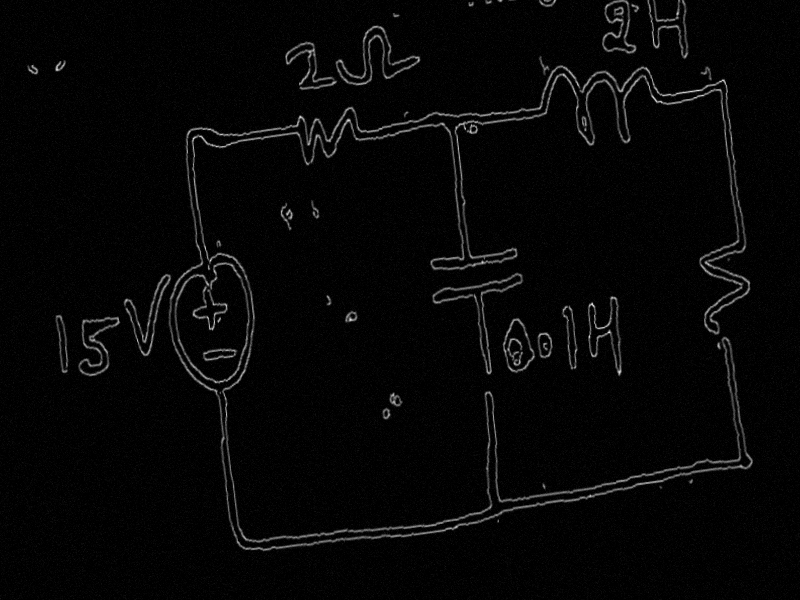 2Ω
2H
15V
+
−
0.1H